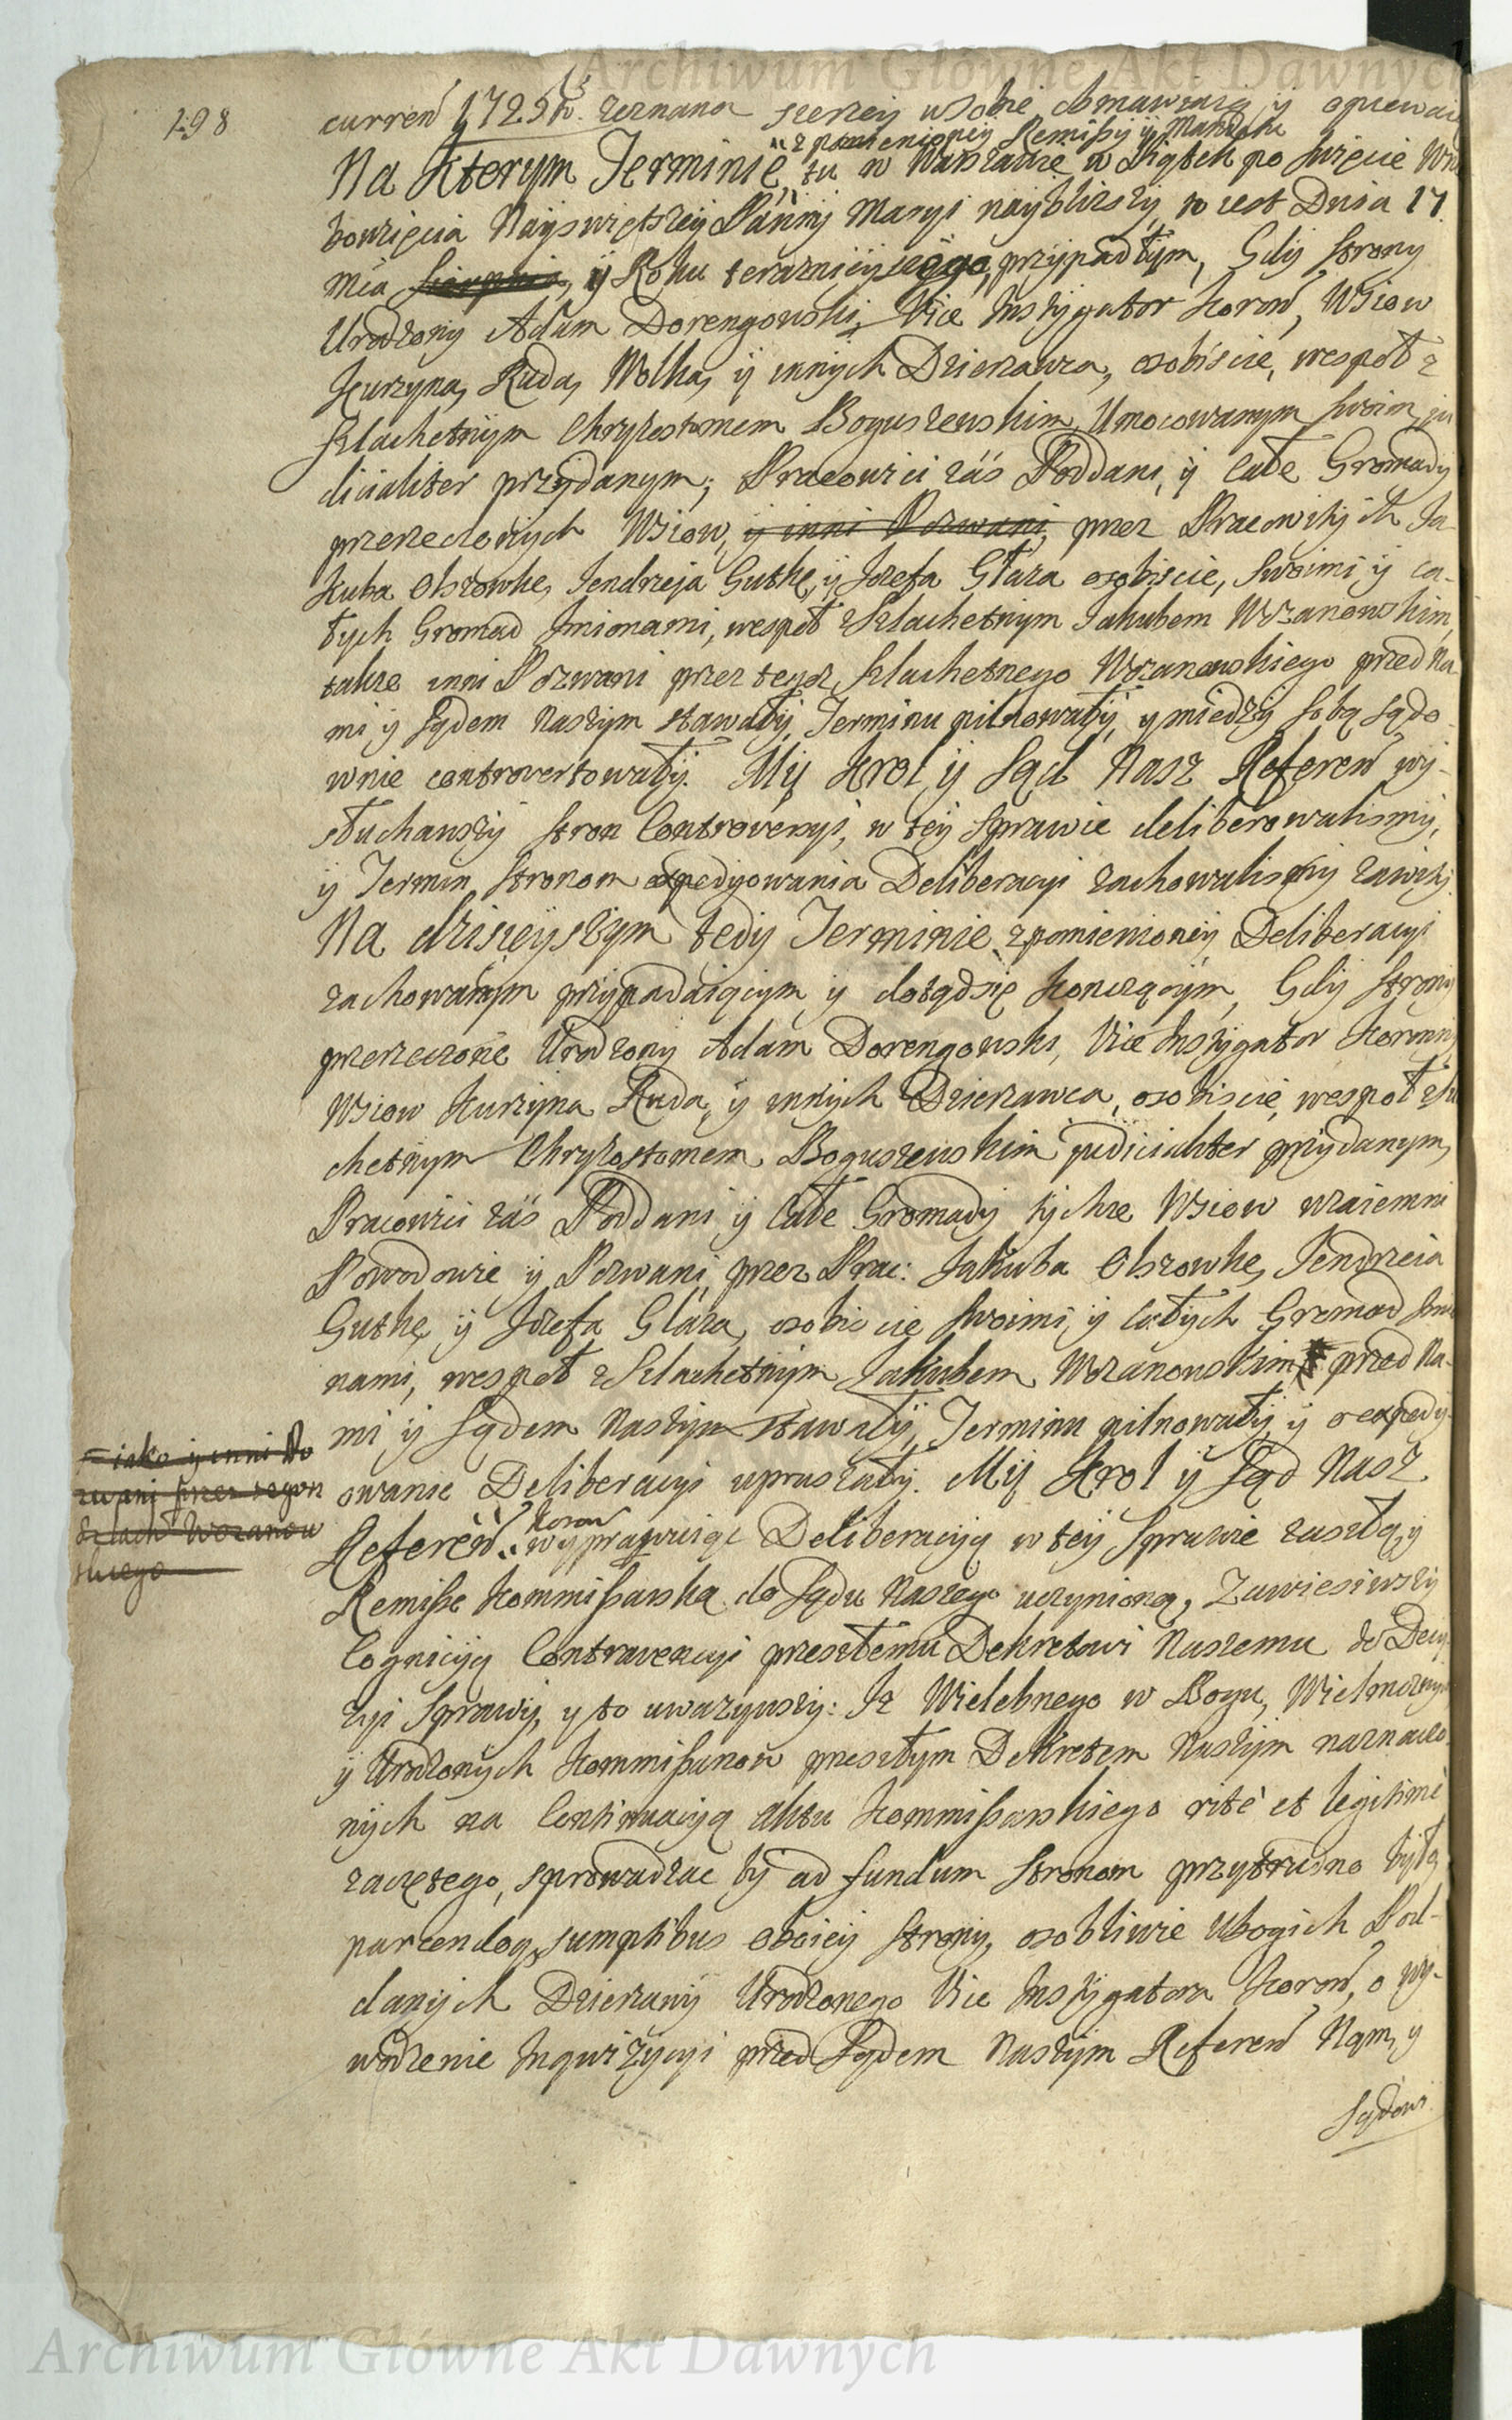 Archiwum Główne Akt Dawnych
198
curreń 1725 zeznana szerzej w sobie obmawiaią y opiewaią
z pomienioney Remissyi y Mandatu
Na Ktorym Terminie, tu w Warszawie w Piątek po Swięcie Wnie
bowzięcia Nayswiętszey Panny Maryi naybliższy, to iest Dnia 17
mca Sierpnia, y Roku teraznieyszego, przypadłym, Gdy Strony
Urodzony Adam Dorengowski, Vice Instygator Koroń, Wsiow
Kurzyna, Ruda, Wolka, y innych Dzierzawca, osobiscie, wespoł z
Szlachetnym Chryzostomem Boguszewskim, Umocowanym swoim, ju
dicialiter przydanym; Pracowici zás Poddani, y całe Gromady
przerzeczonych Wsiow, y inni Pozwani, przez Pracowitych Ja-
kuba Obzowkę, Jendrzeja Gutkę, y Jozefa Głaza osobiscie, swoimi y ca-
łych Gromad Jmionami, wespoł z Szlachetnym Jakubem Wrzanowskim,
także inni Pozwani przez tegoż Szlachetnego Wrzanowskiego przed Na-
mi y Sądem Naszym stawały, Terminu pilnowały, y miedzy sobą sądo-
wnie controvertowały. My Krol y Sąd Nasz Refereń wy-
słuchawszy stron Controversyi, w tey Sprawie deliberowalismy,
y Termin stronom expedyowania Deliberacyi zachowalismy zawity.
Na dzisieyszym tedy Terminie z pomienioney Deliberacyi
zachowanym przypadaiącym y dotądsię konczącym, Gdy strony
przerzeczone Urodzony Adam Dorengowski, Vice Instygator Koronny
Wsiow Kurzyna Ruda, y innych Dzierzawca, osobiscie, wespoł z Szla
chetnym Chryzostomem Boguszewskim judicialiter przydanym,
Pracowici zás Poddani y całe Gromady tychże Wsiow wzaiemni
Powodowie y Pozwani, przez Prac: Jakuba Obzowkę, Jendrzeia
Gutkę, y Jozefa Gláza, osobiscie swoimi, y całych Gromad Jmio
nami, wespoł z Szlachetnym Jakubem Wrzanowskim przed Na-
mi y Sądem Naszym stawały, Terminu pilnowały, y o expedy-
= iako y inni Po
zwani przez tegoż
Szlach Wrzanow
skiego
owanie Deliberacyi upraszały. My Krol y Sąd Nasz
Refereń Koroń wyprawuiąc Deliberacyią w tey Sprawie zaszłą, y
Remissę Kommissarską do Sądu Naszego uczynioną, Zawiesiwszy
Cognicyą Contravencyi przeszłemu Dekretowi Naszemu do Decy-
zyi Sprawy, y to uwazywszy: Jz Wielebnego w Bogu, Wielmoznych
y Urodzonych Kommissarzow przeszłym Dekretem Naszym naznaczo-
nych na Continuacyą Aktu Kommissarskiego ritè et legitimè
zaczętego, sprowadzac by ad fundum stronom przytrudno było,
parcendoq sumptibus oboiey strony, osobliwie ubogich Pod-
danych Dzierzawy Urodzonego Vice Instygatora Koroń, o wy-
wodzenie Inquizycyi przed Sądem Naszym Refereń Nam, y
Sądowi
Archiwum Główne Akt Dawnych